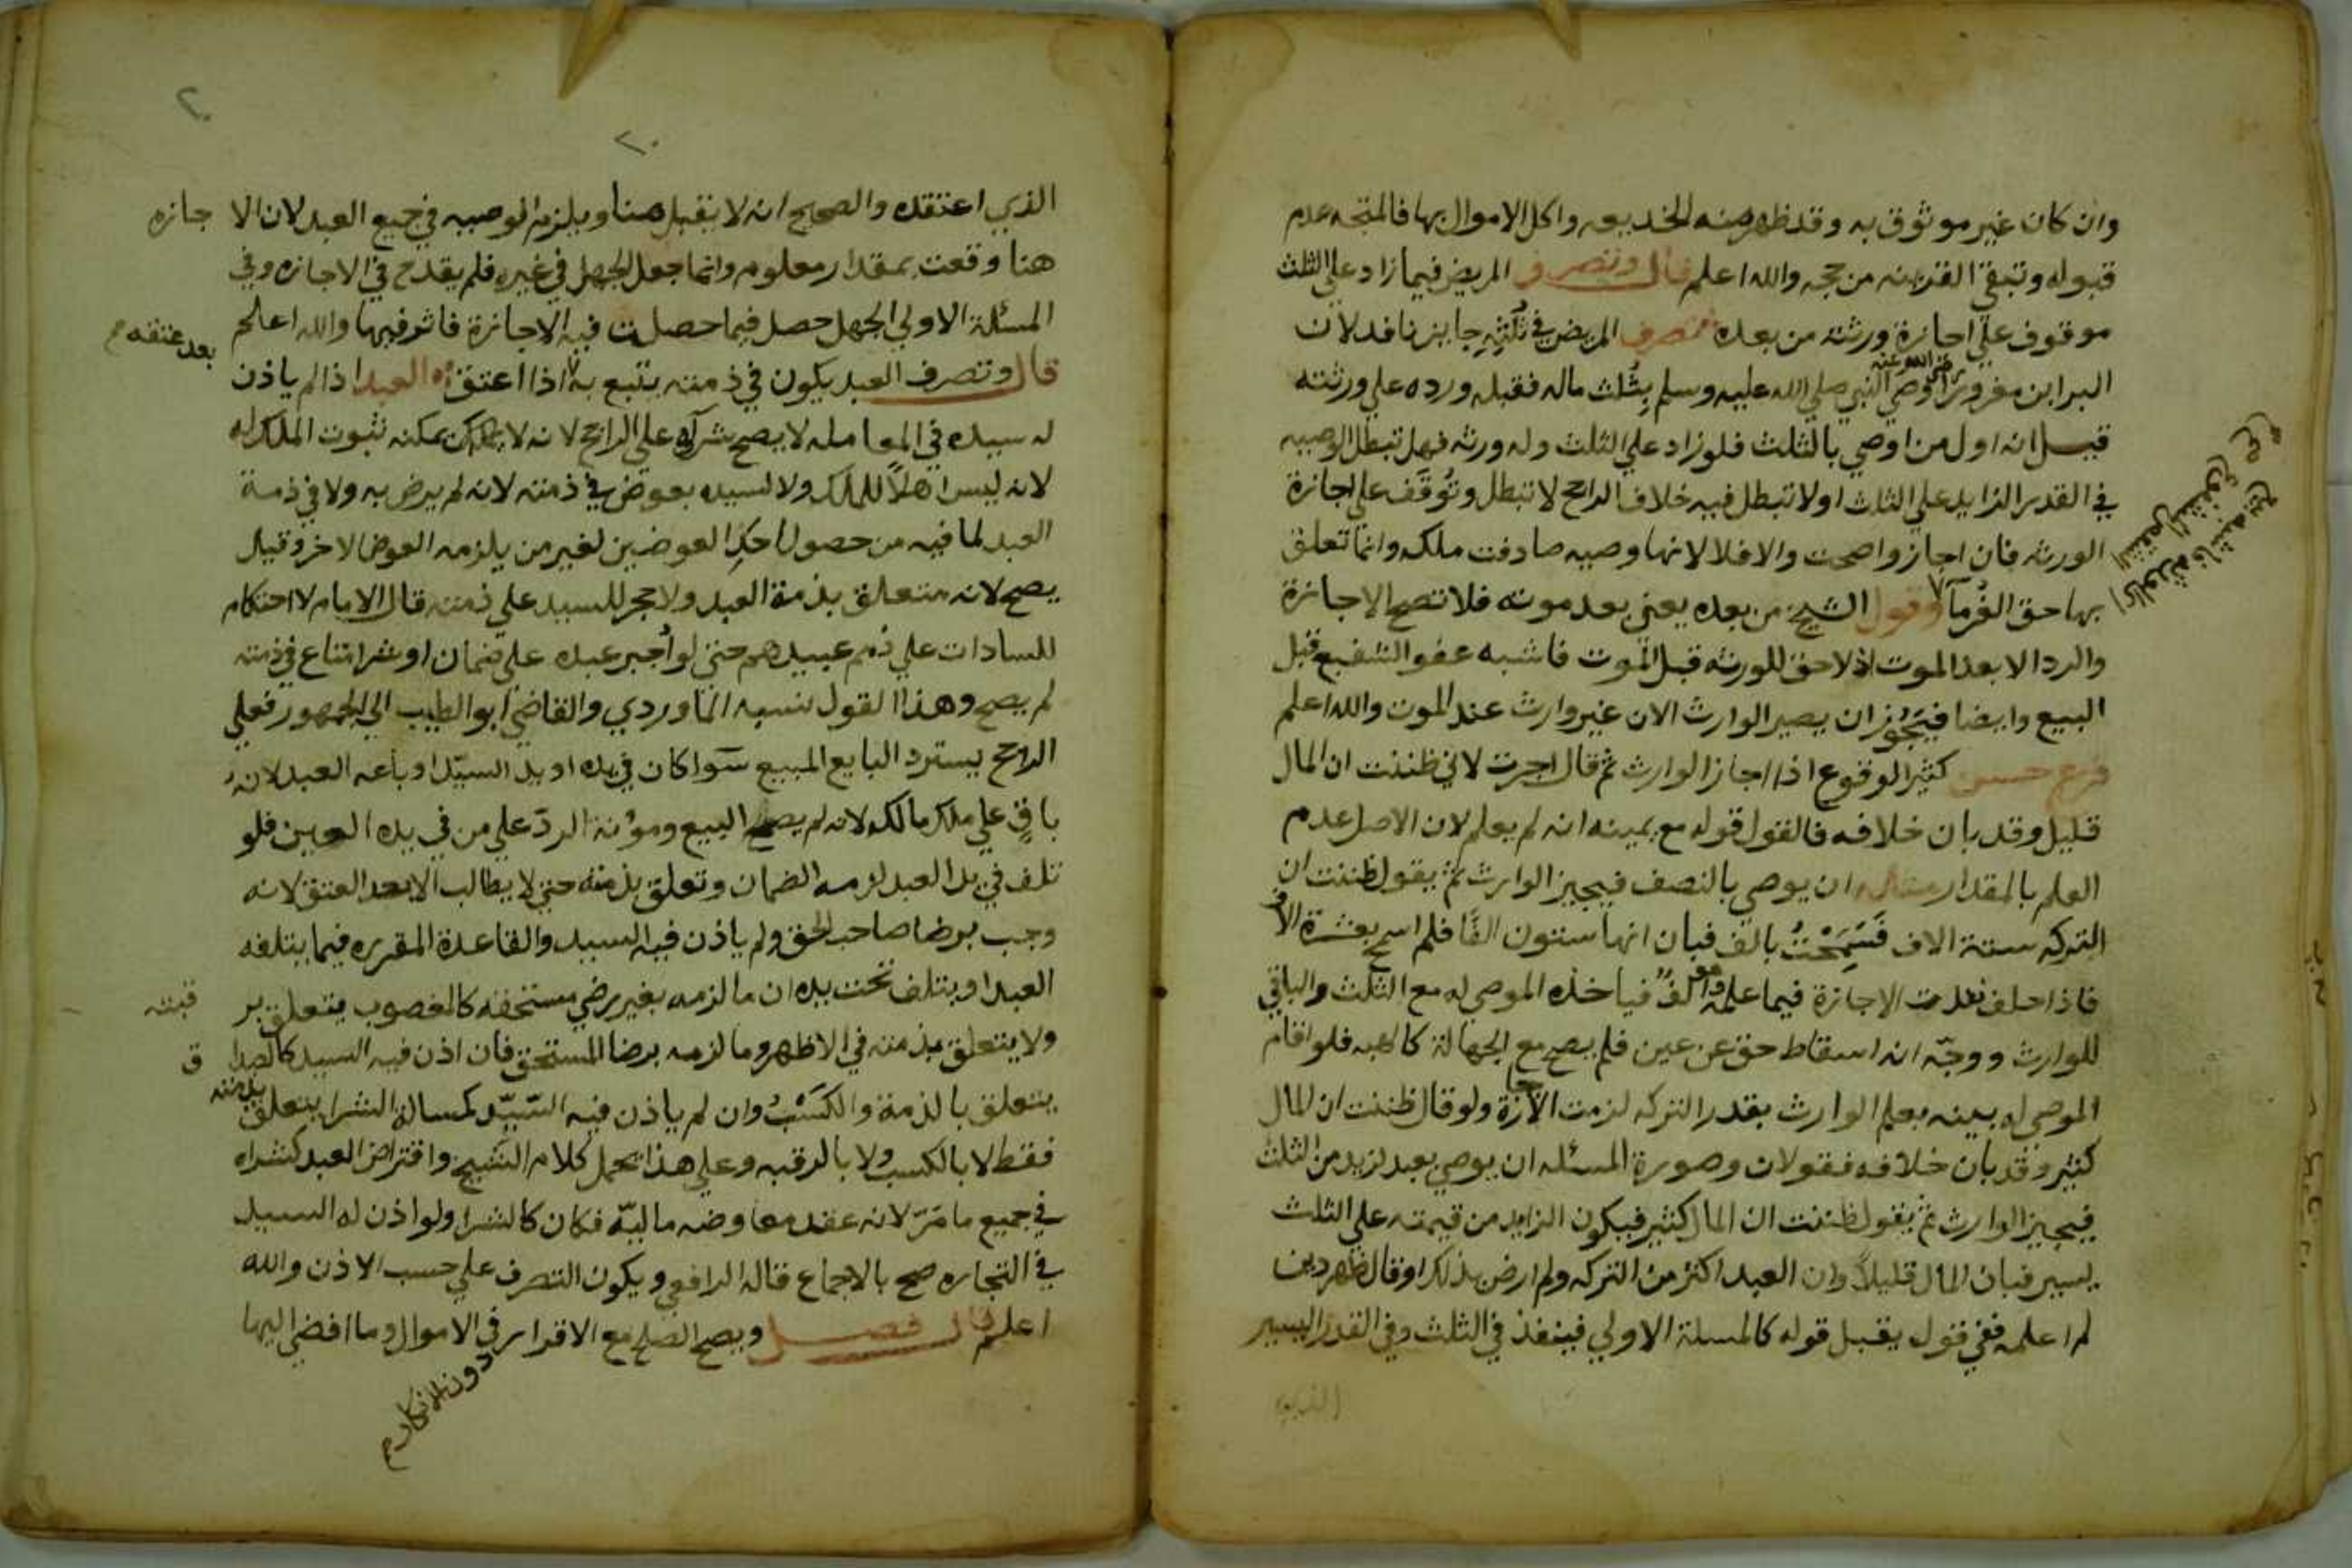 وان كان غير موثوق به وقد ظهر منه الخديعه واكل الاموال بها فالمتجه عدم
قبوله وتبقى القرينه من حجه والله اعلم قال وتصرف المريض فيما زاد على الثلث
موقوف على اجازة ورثته من بعده تصرف المريض في ثلثه جايز نافد لان
البرا ابن معرور رضي الله عنه اوصى النبي صلي الله عليه وسلم بثلث ماله فقبله ورده علي ورثته
قيل انه اول من اوصي بالثلث فلو زاد علي الثلث وله ورثه فهل تبطل الوصيه
في القدر الزايد علي الثلث او لا تبطل فيه خلاف الراجح لا تبطل وتوقف على اجازة
الورثه فان اجازوا صحت والا فلا لانها وصيه صادفت ملكه وانما تعلق
بها حق الغرمآ وقول الشيخ من بعده يعني بعد موته فلا تصح الاجازة
والرد الا بعد الموت اذ لا حق للورثه قبل الموت فاشبه عفو الشفيع قبل
البيع وايضا فيجوز ان يصير الوارث الان غير وارث عند الموت والله اعلم
فرع حسن كثير الوقوع اذا اجاز الوارث ثم قال اجزت لاني ظننت ان المال
قليل وقد بان خلافه فالقول قوله مع يمينه انه لم يعلم لان الاصل عدم
العلم بالمقدار مثاله ان يوصي بالنصف فيجيز الوارث ثم يقول ظننت ان
التركه ستة الاف فسمحت بالف فبان انها ستون الفا فلم اسمح بعشرة الاف
فاذا حلف نفدت الاجازة فيما علمه وهو الف فياخذه الموصي له مع الثلث والباقي
للوارث ووجه انه اسقاط حق عن عين فلم يصح مع الجهالة كالهبه فلو اقام
الموصي له بينه بعلم الوارث بقدر التركه لزمت الاجازة ولو قال ظننت ان المال
كثير وقد بان خلافه فقولان وصورة المسئله ان يوصي بعبد لزيد من الثلث
فيجيز الوارث ثم يقول ظننت ان المال كثير فيكون الزايد من قيمته علي الثلث
يسير فبان المال قليلا وان العبد اكثر من التركه ولم ارض بذلك او قال ظهر دين
لم اعلمه ففي قول يقبل قوله كالمسئلة الاولي فينفذ في الثلث وفي القدر اليسير
الذي
٢٠
٢٠
الذي اعتقده والصحيح انه لا يقبل هنا ويلزم الوصيه في جميع العبد لان الاجازه
هنا وقعت بمقدار معلوم وانما جعل الجهل في غيره فلم يقدح في الاجازه وفي
المسئلة الاولي الجهل حصل فيما حصلت فيه الاجازة فاثر فيها والله اعلم
قال وتصرف العبد يكون في ذمته يتبع به اذا اعتق العبد اذا لم ياذن
بعد عتقه
له سيده في المعامله لا يصح شرآه على الراجح لانه لا يمكن ثبوت الملك له
لانه ليس اهلا للملك ولا لسيده بعوض في ذمته لانه لم يرض به ولا في ذمة
العبد لما فيه من حصول احد العوضين لغير من يلزمه العوض الاخر وقيل
يصح لانه متعلق بذمة العبد ولا حجر للسيد علي ذمته قال الامام لا احتكام
للسادات علي ذمم عبيدهم حتى لو اجبر عبده علي ضمان او شرا متاع في ذمته
لم يصح وهذا القول نسبه الماوردي والقاضي ابو الطيب الي الجمهور فعلي
الراجح يسترد البايع المبيع سوآ كان في يده او يد السيد او باعه العبد لانه
باق علي ملك مالكه لانه لم يصح البيع ومؤنة الرد علي من في يده العين فلو
تلف في يد العبد لزمه الضمان وتعلق بذمته حتي لا يطالب الا بعد العتق لانه
وجب برضا صاحب الحق ولم ياذن فيه السيد والقاعدة المقرره فيما يتلفه
العبد او يتلف تحت يده ان ما لزمه بغير رضي مستحقه كالغصوب يتعلق برقبته
ولا يتعلق بذمته في الاظهر وما لزمه برضا المستحق فان اذن فيه السيد كالصداق
يتعلق بالذمة والكسب وان لم ياذن فيه السيد كمسالة الشرا يتعلق بذمته
فقط لا بالكسب ولا بالرقبه وعلي هذا يحمل كلام الشيخ واقتراض العبد كشراه
في جميع ما مر لانه عقد معاوضه ماليه فكان كالشرا ولو اذن له السيد
في التجاره صح بالاجماع قاله الرافعي ويكون التصرف علي حسب الاذن والله
اعلم قال فصل ويصح الصلح مع الاقرار في الاموال وما افضي اليها
دون الانكار